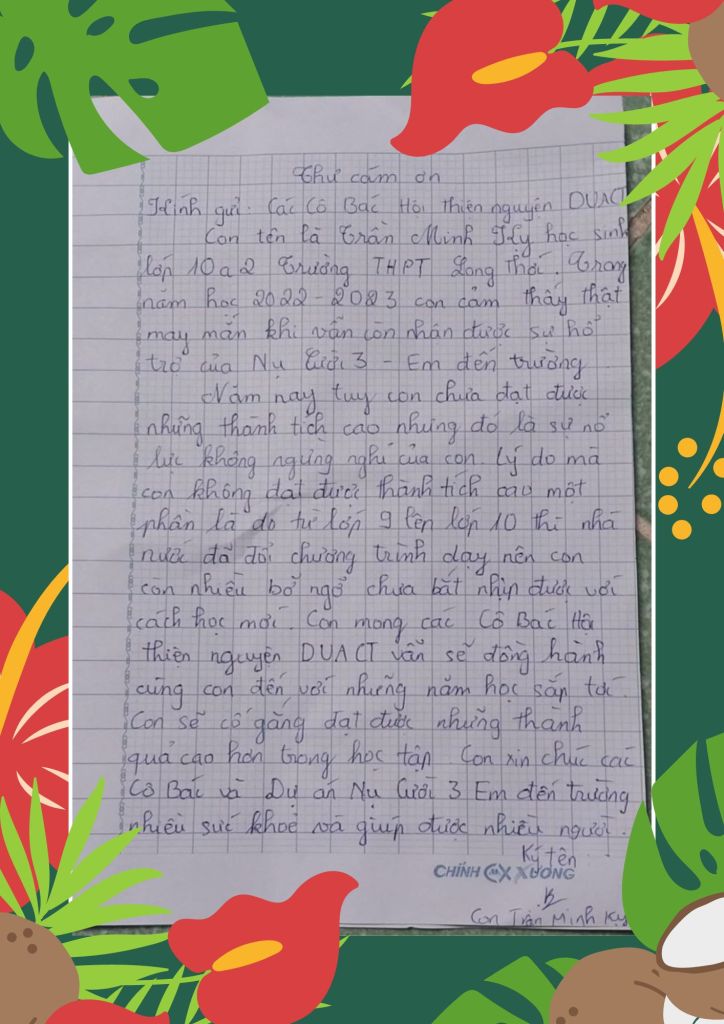 Thư cám ơn
Kính gửi: Các Cô Bác Hội thiện nguyện DUACT
Con tên là Trần Minh Kỳ học sinh
lớp 10a2 Trường THPT Long Thới. Trong
năm học 2022-2023 con cảm thấy thật
may mắn khi vẫn còn nhận được sự hổ
trợ của Nụ Cười 3 - Em đến trường
Năm nay tuy con chưa đạt được
những thành tích cao nhưng đó là sự nổ
lực không ngừng nghỉ của con. Lý do mà
con không đạt được thành tích cao một
phần là do từ lớp 9 lên lớp 10 thì nhà
nước đã đổi chương trình dạy nên con
còn nhiều bỡ ngỡ chưa bắt nhịp được với
cách học mới. Con mong các Cô Bác Hội
thiện nguyện DUACT vẫn sẽ đồng hành
cùng con đến với những năm học sắp tới.
Con sẽ cố gắng đạt được những thành
quả cao hơn trong học tập. Con xin chúc các
Cô Bác và Dự án Nụ Cười 3 Em đến trường
nhiều sức khoẻ và giúp được nhiều người.
Ký tên
CHÍNH XƯƠNG
Con Trần Minh Kỳ